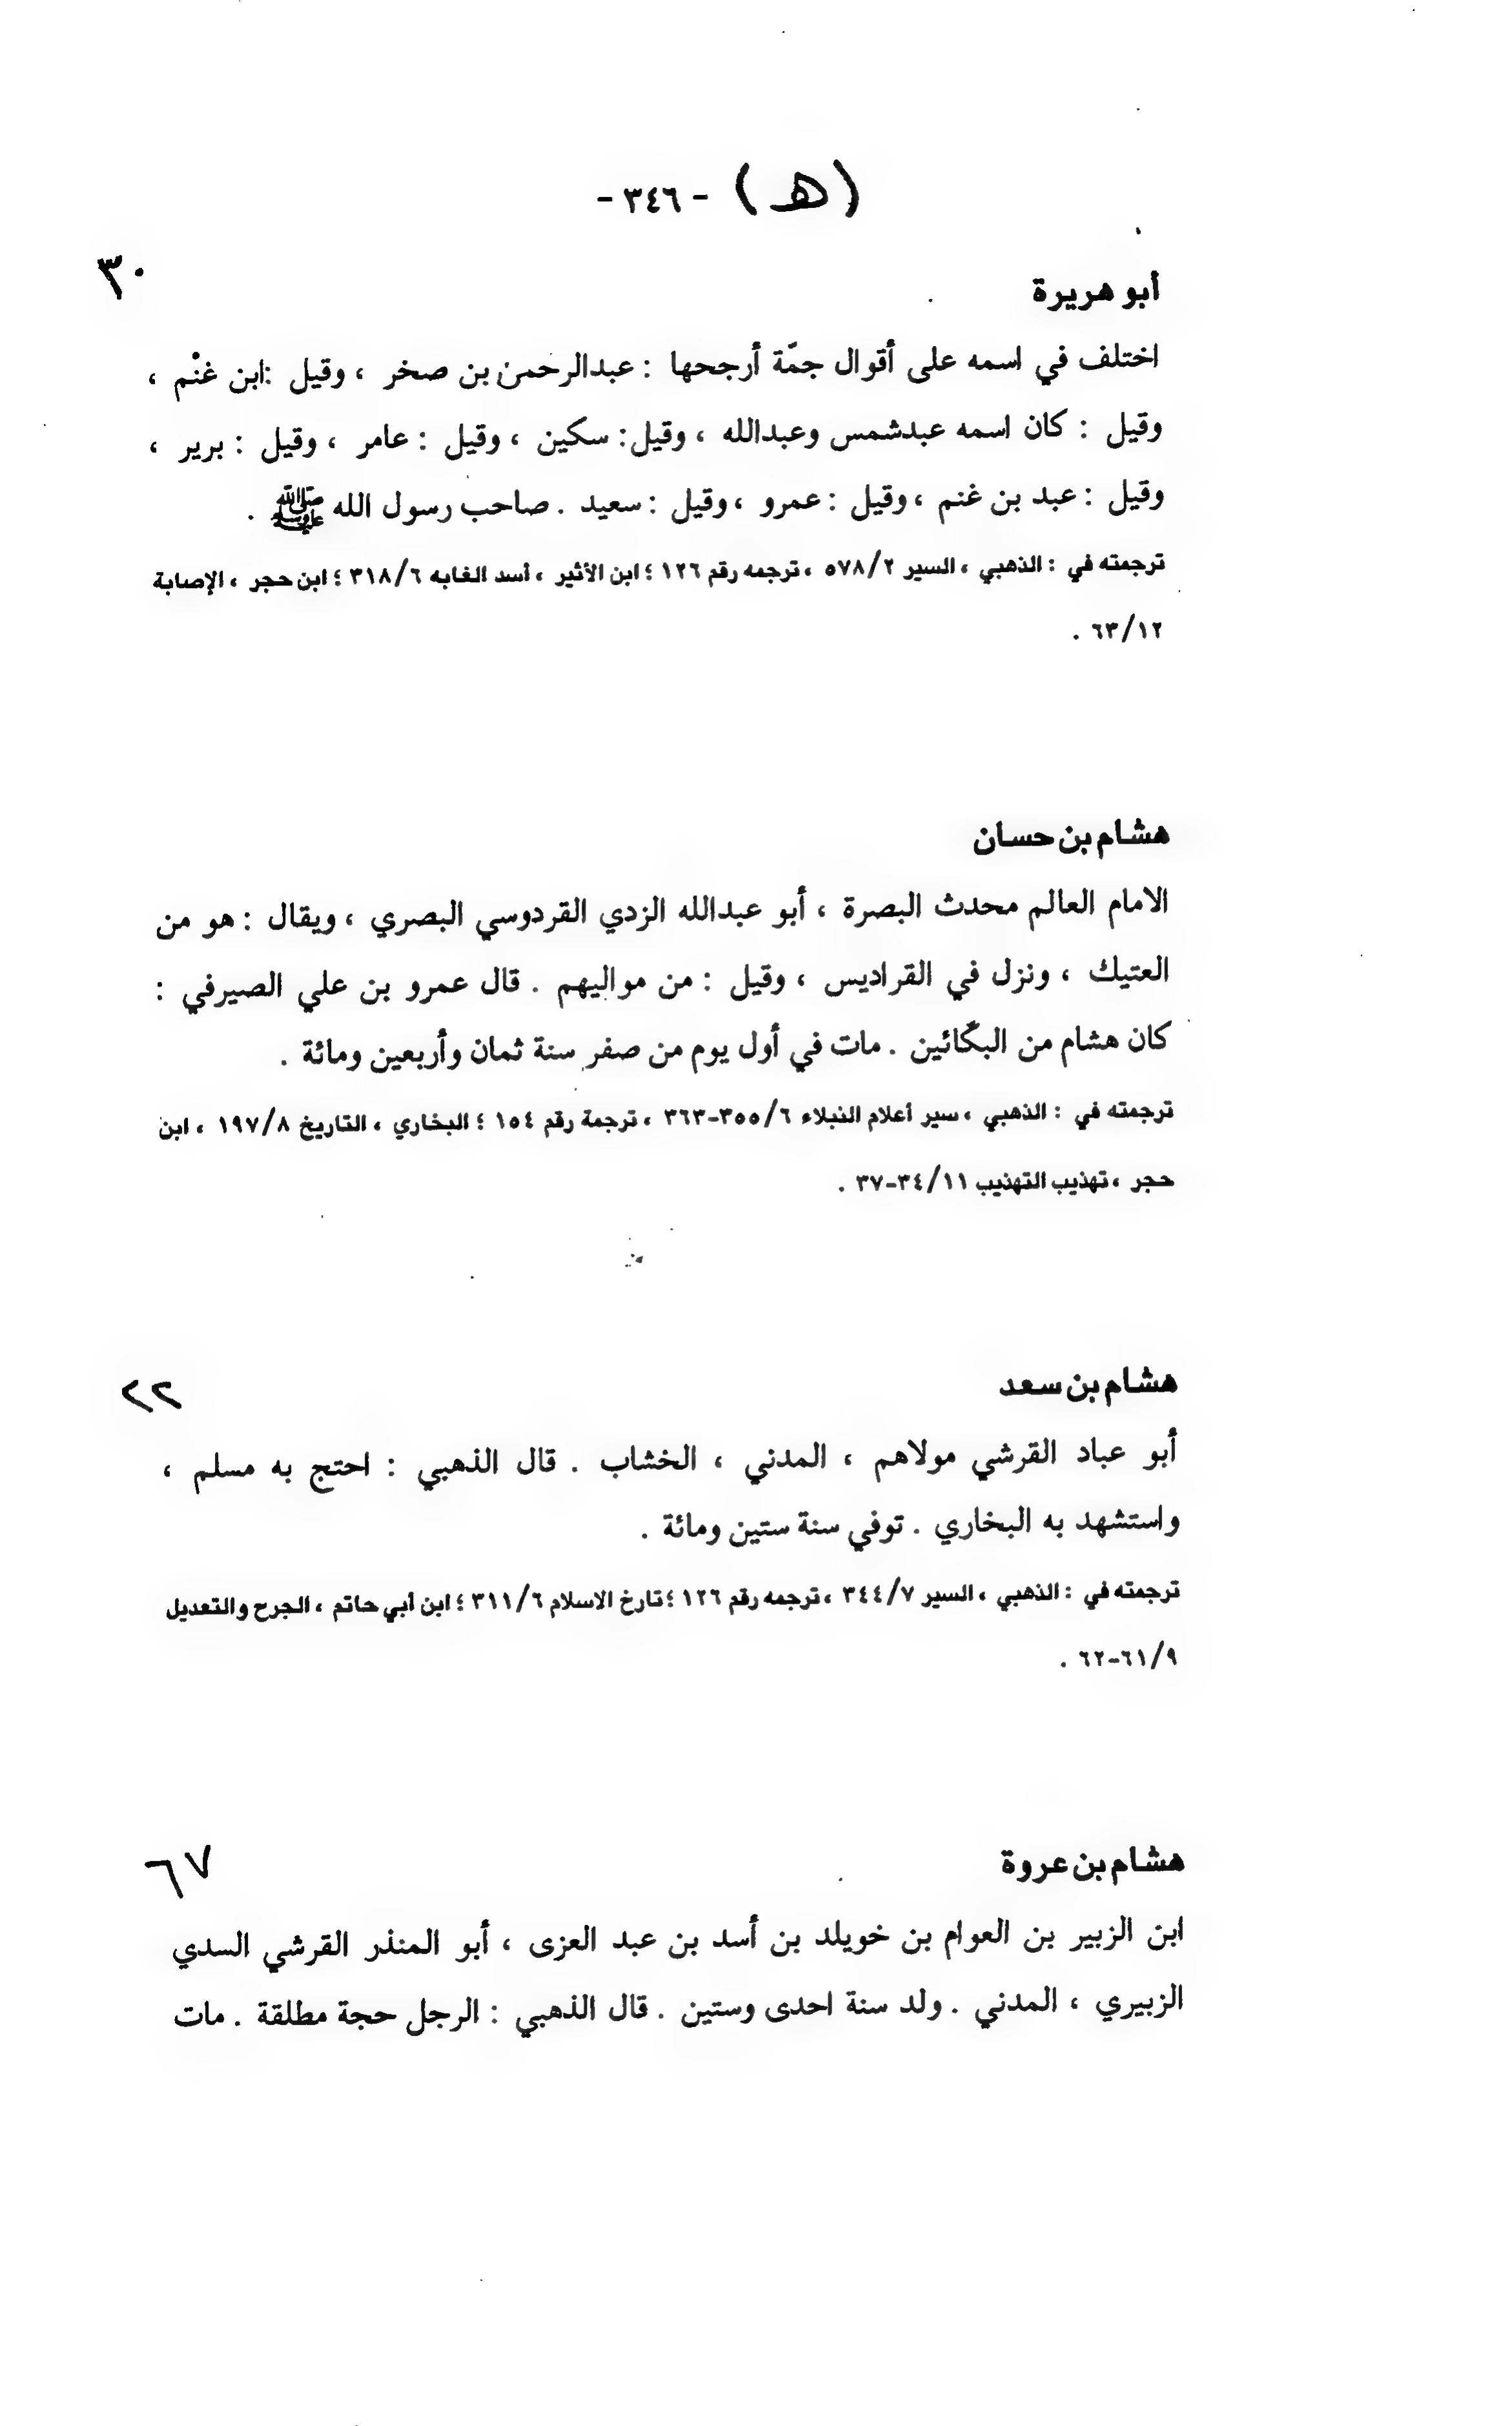 (هـ) - ٣٤٦ -
٣٠
أبو هريرة
اختلف في اسمه على أقوال جمّة أرجحها : عبدالرحمن بن صخر ، وقيل :ابن غنْم ،
وقيل : كان اسمه عبدشمس وعبدالله ، وقيل: سكين ، وقيل : عامر ، وقيل : برير ،
وقيل : عبد بن غنم ، وقيل : عمرو ، وقيل : سعيد . صاحب رسول الله ﷺ .
ترجمته في : الذهبي ، السير ٥٧٨/٢ ، ترجمه رقم ١٢٦ ؛ ابن الأثير ، أسد الغابه ٣١٨/٦ ؛ ابن حجر ، الإصابة
٦٣/١٢ .
هشام بن حسان
الامام العالم محدث البصرة ، أبو عبدالله الزدي القردوسي البصري ، ويقال : هو من
العتيك ، ونزل في القراديس ، وقيل : من مواليهم . قال عمرو بن علي الصيرفي :
كان هشام من البكّائين . مات في أول يوم من صفر سنة ثمان وأربعين ومائة .
ترجمته في : الذهبي ، سير أعلام النبلاء ٣٥٥/٦-٣٦٣ ، ترجمة رقم ١٥٤ ؛ البخاري ، التاريخ ١٩٧/٨ ، ابن
حجر ، تهذيب التهذيب ٣٤/١١-٣٧ .
هشام بن سعد
٢٢
أبو عباد القرشي مولاهم ، المدني ، الخشاب . قال الذهبي : احتج به مسلم ،
واستشهد به البخاري . توفي سنة ستين ومائة .
ترجمته في : الذهبي ، السير ٣٤٤/٧ ، ترجمه رقم ١٢٦ ؛تارخ الاسلام ٣١١/٦ ؛ ابن أبي حاتم ، الجرح والتعديل
٦١/٩-٦٢ .
هشام بن عروة
٦٧
ابن الزبير بن العوام بن خويلد بن أسد بن عبد العزى ، أبو المنذر القرشي السدي
الزبيري ، المدني . ولد سنة احدى وستين . قال الذهبي : الرجل حجة مطلقة . مات